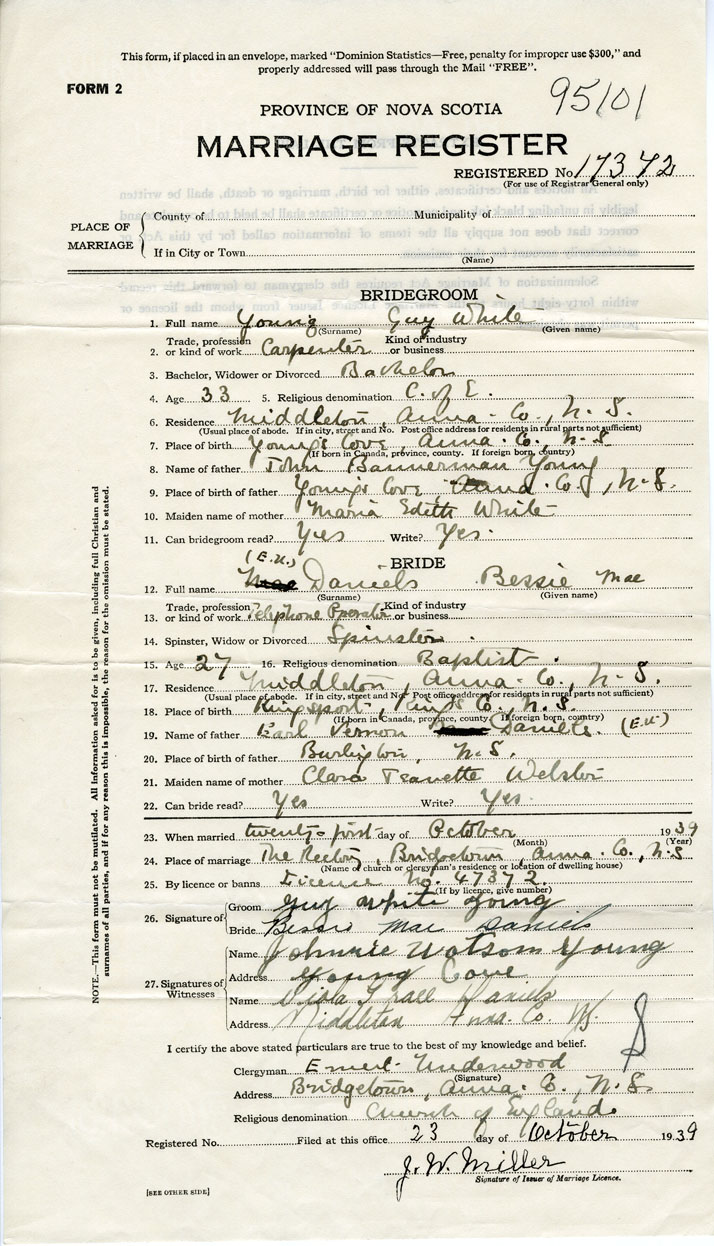 This form, if placed in an envelope, marked "Dominion Statistics—Free, penalty for improper use $300," and
properly addressed will pass through the Mail "FREE".
FORM 2
95101
PROVINCE OF NOVA SCOTIA
MARRIAGE REGISTER
REGISTERED No. 17372
(For use of Registrar General only)
PLACE OF MARRIAGE
County of Municipality of
If in City or Town
(Name)
BRIDEGROOM
1. Full name Young Guy White
(Surname) (Given name)
Trade, profession Kind of industry
2. or kind of work Carpenter or business
3. Bachelor, Widower or Divorced Bachelor
4. Age 33 5. Religious denomination C. of E.
6. Residence Middleton, Anna. Co., N. S.
(Usual place of abode. If in city, street and No. Post office address for residents in rural parts not sufficient)
7. Place of birth Young's Cove, Anna. Co., N. S.
(If born in Canada, province, county. If foreign born, country)
8. Name of father John Bannerman Young
9. Place of birth of father Young's Cove Anna. Co., N. S.
10. Maiden name of mother Maria Edith White
11. Can bridegroom read? Yes Write? Yes.
BRIDE
(E.U.)
12. Full name Mae Daniels Bessie Mae
(Surname) (Given name)
Trade, profession Kind of industry
13. or kind of work Telephone Operator or business
14. Spinster, Widow or Divorced Spinster
15. Age 27 16. Religious denomination Baptist.
17. Residence Middleton, Anna. Co., N. S.
(Usual place of abode. If in city, street and No. Post office address for residents in rural parts not sufficient)
18. Place of birth Kingsport, King's Co., N. S.
(If born in Canada, province, county. If foreign born, country)
19. Name of father Earl Vernon Daniels. (E.U.)
20. Place of birth of father Burlington, N. S.
21. Maiden name of mother Clara Jeanette Webster
22. Can bride read? Yes Write? Yes.
23. When married twenty-first day of October 1939
(Month) (Year)
24. Place of marriage The Rectory, Bridgetown, Anna. Co., N. S
(Name of church or clergyman's residence or location of dwelling house)
25. By licence or banns Licence No. 47372.
(If by licence, give number)
26. Signature of
Groom Guy White Young
Bride Bessie Mae Daniels
27. Signatures of Witnesses
Name Johnnie Watson Young
Address Young Cove
Name Viola Daniels
Address Middleton Anna. Co. NS.
I certify the above stated particulars are true to the best of my knowledge and belief.
Clergyman Ernest Underwood
(Signature)
Address Bridgetown, Anna. Co., N. S.
Religious denomination Church of England.
Registered No. Filed at this office 23 day of October 1939
J. W. Miller
Signature of Issuer of Marriage Licence.
[SEE OTHER SIDE]
NOTE.—This form must not be mutilated. All information asked for is to be given, including full Christian and
surnames of all parties, and if for any reason this is impossible, the reason for the omission must be stated.